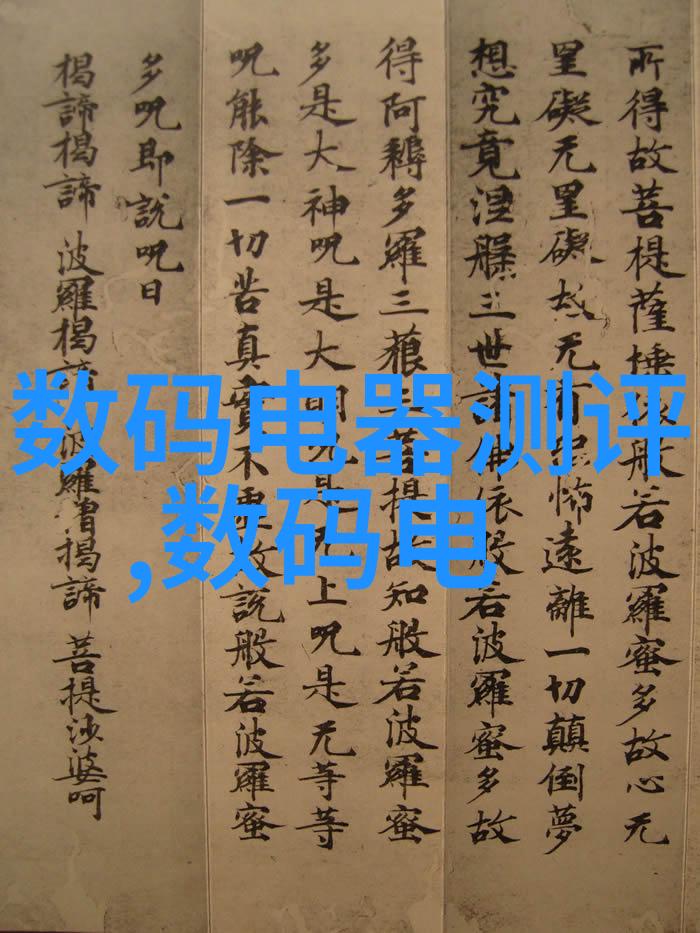 所得故菩提薩埵依般若波羅蜜多故心无
罣礙无罣礙故无有恐怖遠離一切顛倒夢
想究竟涅槃三世諸佛依般若波羅蜜多故
得阿耨多羅三藐三菩提故知般若波羅蜜
多是大神呪是大明呪是无上呪是无等等
呪能除一切苦真實不虛故説般若波羅蜜
多呪即説呪曰
揭諦揭諦 波羅揭諦 波羅僧揭諦 菩提沙婆呵
数码电器测评
,数码电